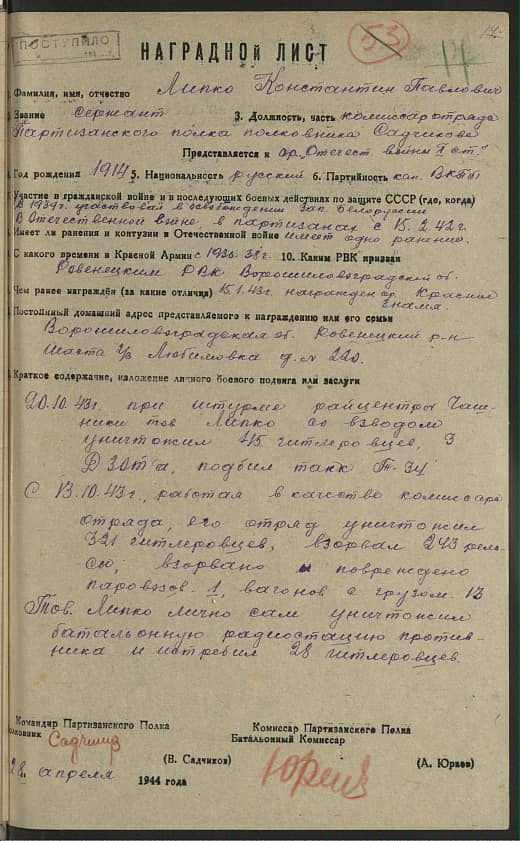 ПОСТУПИЛО
53
НАГРАДНОЙ ЛИСТ
Фамилия, имя, отчество Липко Константин Павлович
Звание Сержант 3. Должность, часть комиссар отряда
Партизанского полка полковника Садчикова
Представляется к ор. „Отечест. войны I ст."
Год рождения 1914 5. Национальность русский 6. Партийность кан. ВКПб
Участие в гражданской войне и в последующих боевых действиях по защите СССР (где, когда)
В 1939г. участвовал в освобождении Зап. Белоруссии
В Отечественной войне в партизанах с 15.2.42г.
Имеет ли ранения и контузии в Отечественной войне имеет одно ранение.
С какого времени в Красной Армии с 1936-38г. 10. Каким РВК призван
Ровенецким РВК Ворошиловоградской об.
Чем ранее награждён (за какие отличия) 15.1.43г. награжден ор. Красное
Знамя.
Постоянный домашний адрес представляемого к награждению или его семьи
Ворошиловоградская об. Ровенецкий р-н
Шахта Любимовка д. № 220.
Краткое содержание, изложение личного боевого подвига или заслуги
20.10.43г. при штурме райцентра Чаш-
ники тов Липко со взводом
уничтожил 45 гитлеровцев, 3
ДЗОТа, подбил танк Т-34
С 13.10.43г., работая в качестве комиссара
отряда, его отряд уничтожил
321 гитлеровцев, взорвал 243 рель-
сы, взорвано и повреждено
паровозов 1, вагонов с грузом 13
Тов. Липко лично сам уничтожил
батальонную радиостацию против-
ника и истребил 28 гитлеровцев.
Командир Партизанского Полка Комиссар Партизанского Полка
Полковник Садчиков Батальонный Комиссар
(В. Садчиков) Юраев (А. Юраев)
28 апреля 1944 года